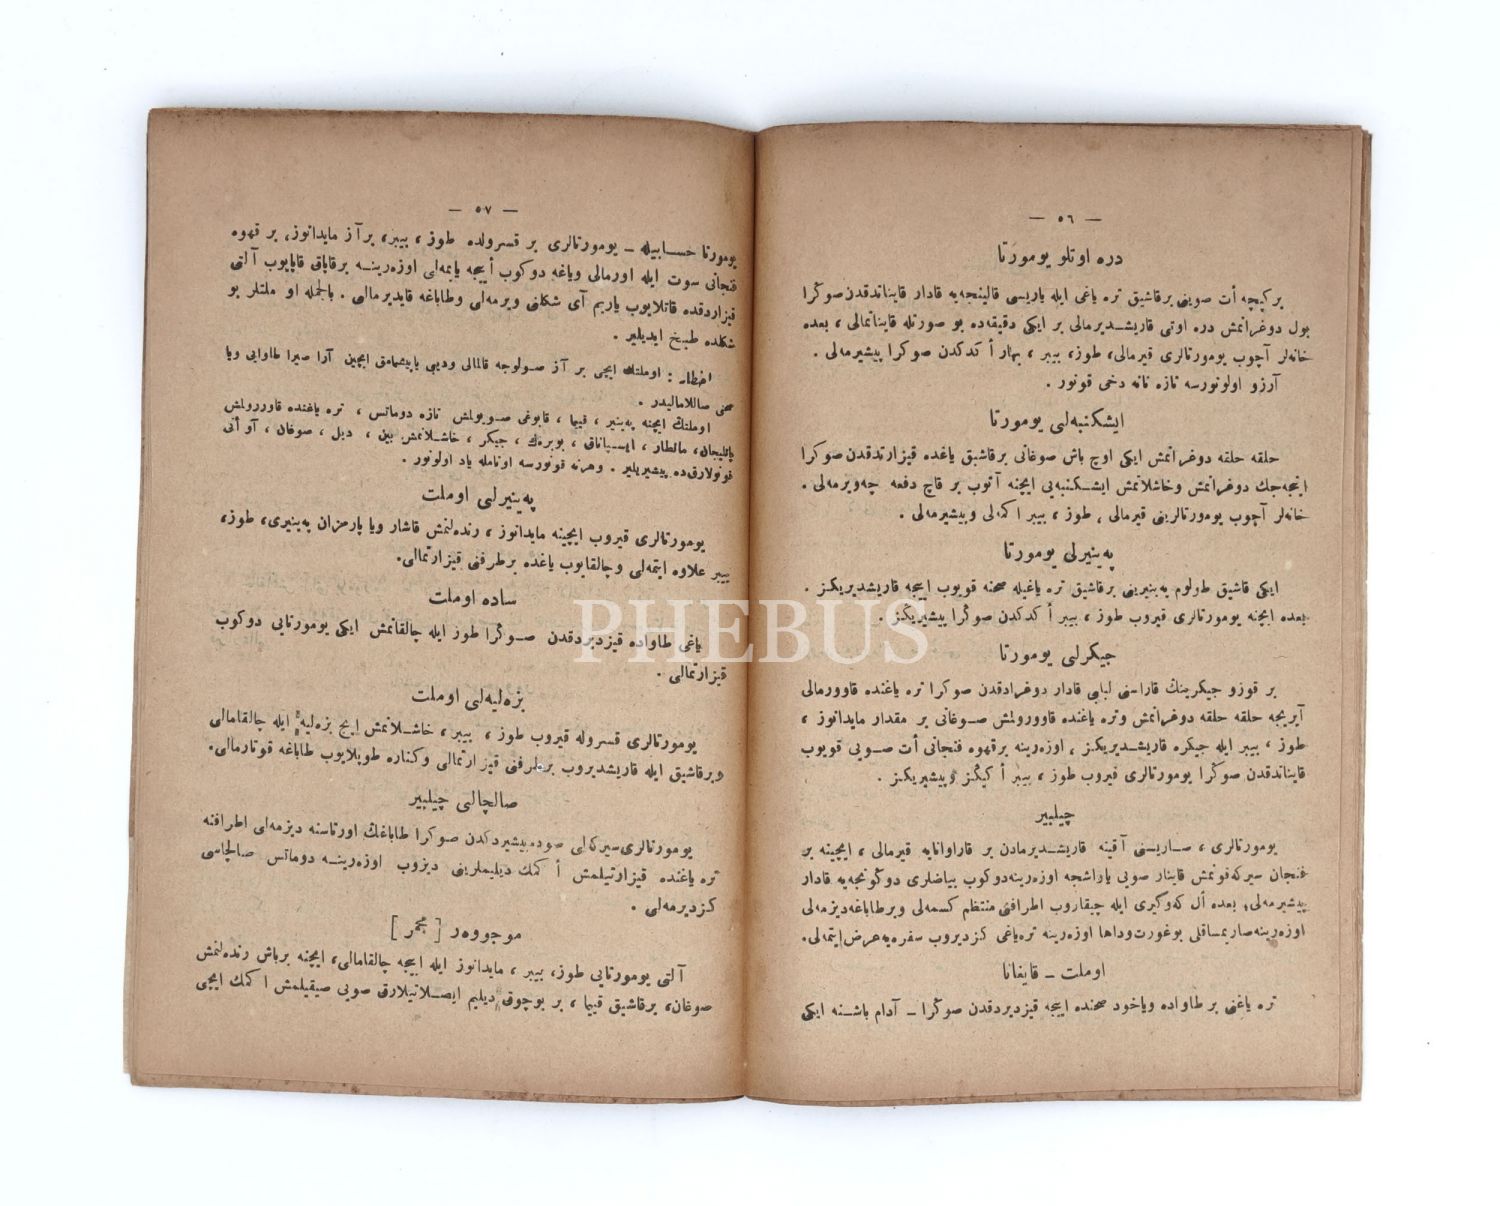 — ٥٦ —
دره اوتلو يومورتا
بركپچه أت صويى برقاشيق تره ياغى ايله ياريسى قالينجه‌يه قادار قايناتدقدن صوڭرا
بول دوغرانمش دره اوتى قاريشديرمالى بر ايكى دقيقه‌ده بو صورتله قايناتمالى ، بعده
خانه‌لر آچوب يومورتالرى قيرمالى، طوز، بيبر ، بهار أكدكدن صوكرا پيشيرمه‌لى .
آرزو اولونورسه تازه نانه دخى قونور .
ايشكنبه‌لى يومورتا
حلقه حلقه دوغرانمش ايكى اوچ باش صوغانى برقاشيق ياغده قيزارتدقدن صوكرا
اينجه‌جك دوغرانمش وخاشلانمش ايشكنبه‌يى ايچنه آتوب بر قاچ دفعه چه‌ويرمه‌لى .
خانه‌لر آچوب يومورتالرينى قيرمالى ، طوز ، بيبر اكه‌لى وپيشيرمه‌لى .
په‌ينيرلى يومورتا
ايكى قاشيق طولوم په‌ينيرينى برقاشيق تره ياغيله صحنه قويوب اييجه قاريشديريكز .
بعده ايچنه يومورتالرى قيروب طوز ، بيبر أكدكدن صوڭرا پيشيريڭز .
جيكرلى يومورتا
بر قوزو جيكرينڭ قاراسنى لبلبى قادار دوغرادقدن صوكرا تره ياغنده قاوورمالى
آيريجه حلقه حلقه دوغرانمش وتره ياغنده قاوورولمش صوغانى بر مقدار مايدانوز ،
طوز ، بيبر ايله جيكره قاريشديريكز ، اوزه‌رينه برقهوه فنجانى أت صويى قويوب
قايناتدقدن صوڭرا يومورتالرى قيروب طوز ، بيبر أكيڭز وپيشيريكز .
چيلبير
يومورتالرى ، صاريسنى آقينه قاريشديرمادن بر قاراوانايه قيرمالى ، ايچينه بر
فنجان سيركه‌قونمش قاينار صويى ياراشجه اوزه‌رينه‌دوكوب بياضلرى دوڭونجه‌يه قادار
پيشيرمه‌لى؛ بعده أل كه‌وگيرى ايله چيقاروب اطرافنى منتظم كسمه‌لى وبرطاباغه‌ديزمه‌لى
اوزه‌رينه‌صاريمساقلى يوغورت‌وداها اوزه‌رينه تره‌ياغى كزديروب سفره‌يه‌عرض‌ايتمالى.
اوملت – قايغانا
تره ياغنى بر طاواده وياخود صحنده اييجه قيزديردقدن صوڭرا – آدام باشنه ايكى
— ٥٧ —
يومورتا حسابيله – يومورتالرى بر قسرولده طوز ، بيبر، برآز مايدانوز، بر قهوه
فنجانى سوت ايله اورمالى وياغه دوكوب أييجه يايمه‌لى اوزه‌رينه برقاپاق قاپايوب آلتى
قيزاردقده قاتلايوب ياريم آى شكلنى ويرمه‌لى وطاباغه قايديرمالى . بالجمله او ملتلر بو
شكلده طبخ ايديلير .
اخطار : اوملتك ايچى بر آز صولوجه قالمالى وديبى ياپيشمامق ايچين آرا صيرا طاوايى ويا
صحنى صاللاماليدر .
اوملتڭ ايچنه په‌ينير ، قييما ، قابوغى صويولمش تازه دوماتس ، تره ياغنده قاوورولمش
پاتليجان، مانطار ، ايسپاناق ، بوبرك ، جيكر ، خاشلانمش بين ، ديل ، صوغان ، آو أتى
قونولارق‌ده پيشيريلير . وهرنه قونورسه اونامله ياد اولونور .
په‌ينيرلى اوملت
يومورتالرى قيروب ايچينه مايدانوز ، رنده‌لنمش قاشار ويا پارمزان په‌ينيرى، طوز،
بيبر علاوه ايتمه‌لى وچالقايوب ياغده برطرفنى قيزارتمالى.
ساده اوملت
ياغى طاواده قيزديردقدن صوڭرا طوز ايله چالقانمش ايكى يومورتايى دوكوب
قيزارتمالى .
بزه‌ليه‌لى اوملت
يومورتالرى قسروله قيروب طوز ، بيبر ، خاشلانمش ايچ بزه‌ليه ايله چالقامالى
وبرقاشيق ايله قاريشديروب برطرفنى قيزارتمالى وكناره طوپلايوب طاباغه قوتارمالى.
صالچالى چيلبير
يومورتالرى سيركه‌لى صوده پيشيردكدن صوكرا طاباغڭ اورتاسنه ديزمه‌لى اطرافنه
تره ياغنده قيزارتيلمش أكمك ديليملرينى ديزوب اوزه‌رينه دوماتس صالچاسى
كزديرمه‌لى .
موجووه‌ر [ مجمر ]
آلتى يومورتايى طوز، بيبر ، مايدانوز ايله اييجه چالقامالى، ايچنه برباش رنده‌لنمش
صوغان، برقاشيق قييما ، بر بوچوق ديليم ايصلاتيلارق صويى صيقيلمش اكمك ايچى
PHEBUS